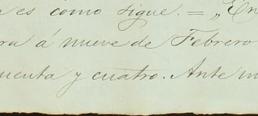 es como sigue. = „En
ra á nueve de Febrero
cuenta y cuatro. Ante m